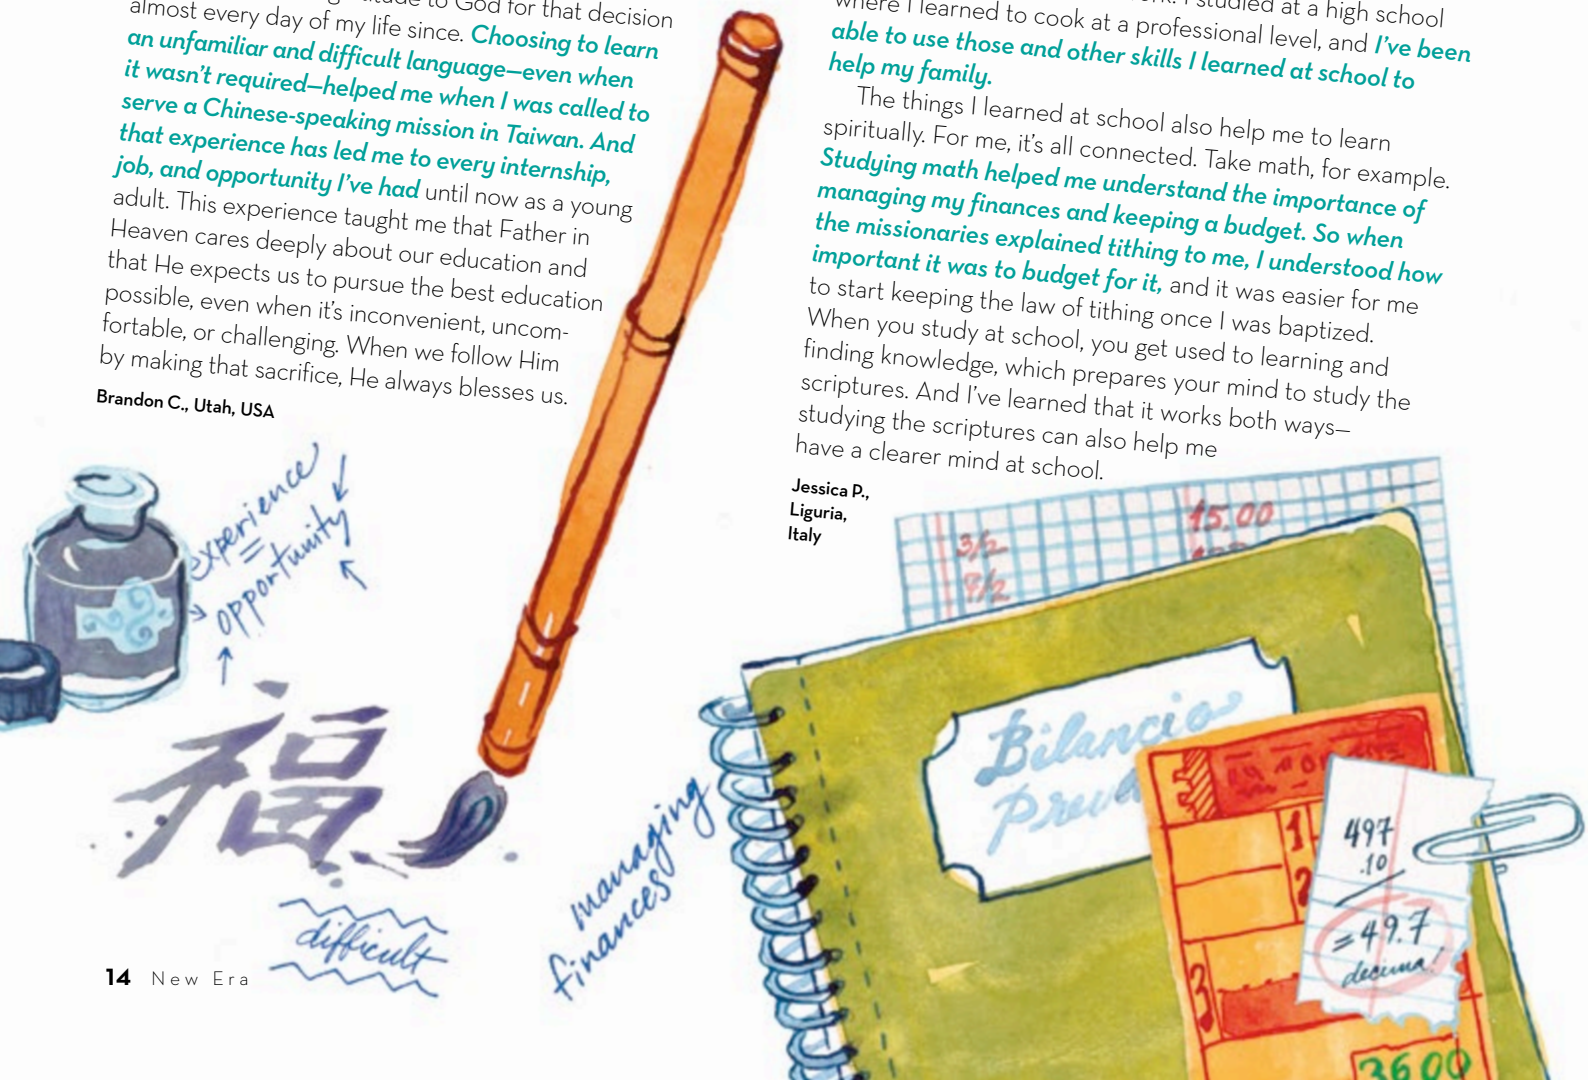 to God for that decision
almost every day of my life since. Choosing to learn
an unfamiliar and difficult language—even when
it wasn't required—helped me when I was called to
serve a Chinese-speaking mission in Taiwan. And
that experience has led me to every internship,
job, and opportunity I've had until now as a young
adult. This experience taught me that Father in
Heaven cares deeply about our education and
that He expects us to pursue the best education
possible, even when it's inconvenient, uncom-
fortable, or challenging. When we follow Him
by making that sacrifice, He always blesses us.
Brandon C., Utah, USA
experience
=
opportunity
福
difficult
14 New Era
I studied at a high school
where I learned to cook at a professional level, and I've been
able to use those and other skills I learned at school to
help my family.
The things I learned at school also help me to learn
spiritually. For me, it's all connected. Take math, for example.
Studying math helped me understand the importance of
managing my finances and keeping a budget. So when
the missionaries explained tithing to me, I understood how
important it was to budget for it, and it was easier for me
to start keeping the law of tithing once I was baptized.
When you study at school, you get used to learning and
finding knowledge, which prepares your mind to study the
scriptures. And I've learned that it works both ways—
studying the scriptures can also help me
have a clearer mind at school.
Jessica P.,
Liguria,
Italy
3/2
15.00
managing
finances
Bilancio
1
2
3
497
.10
=49.7
decima!
3600